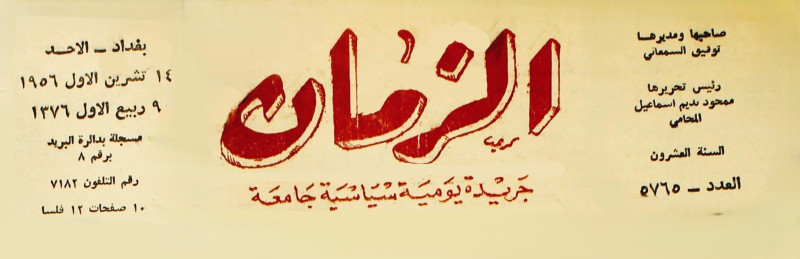 صاحبها ومديرها
توفيق السمعاني
رئيس تحريرها
ممحود نديم اسماعيل
المحامي
السنة العشرون
العدد – ٥٧٦٥
الزمان
جريدة يومية سياسية جامعة
بغداد – الاحد
١٤ تشرين الاول ١٩٥٦
٩ ربيع الاول ١٣٧٦
مسجلة بدائرة البريد
برقم ٨
رقم التلفون ٧١٨٢
١٠ صفحات ١٢ فلسا